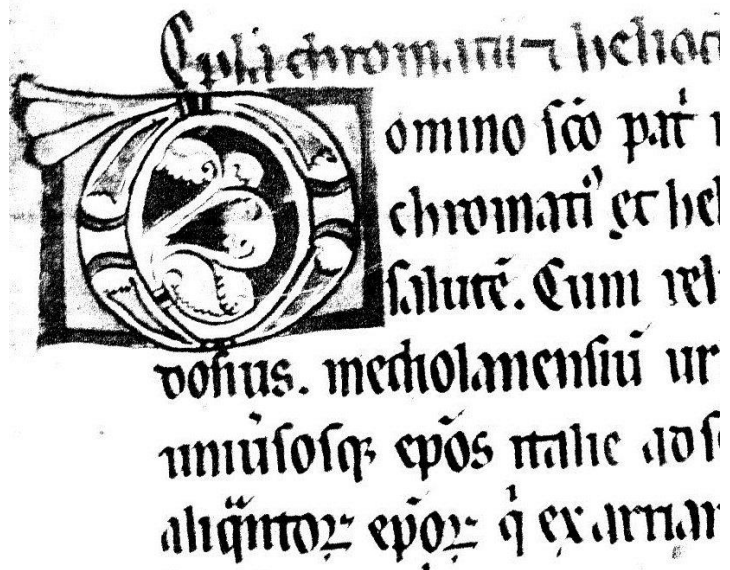 Epl'a chromatii ⁊ heliod
Domino sc̄o pat'
chromati' et hel
salutē. Cum rel
dosius. mediolanensiū ur
uniu'sosq; ep̄os italie ad s
aliq̈ntoꝝ ep̄oꝝ q' ex arrian